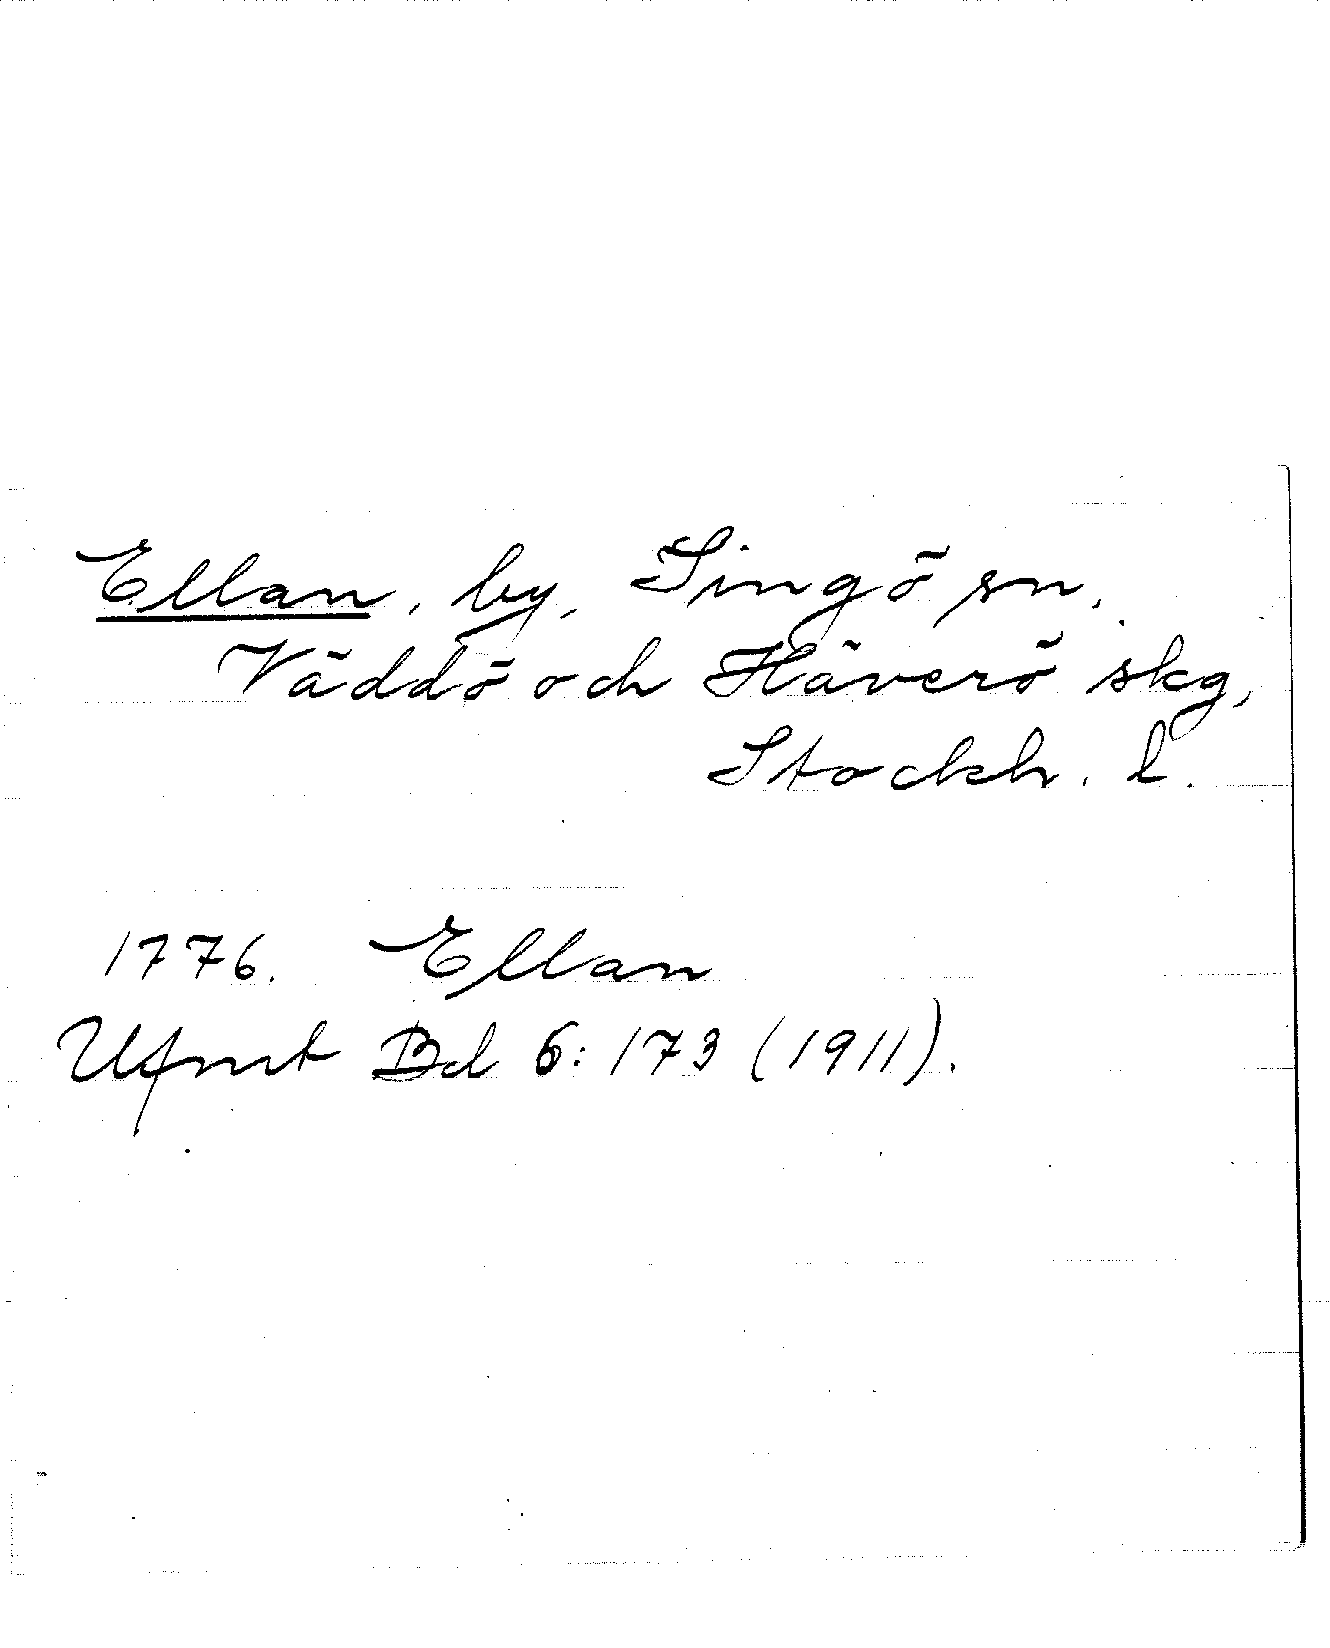 Ellan, by, Singö sn,
Väddö och Häverö skg,
Stockh. l.
1776. Ellan
Ufmt Bd 6: 173 (1911).